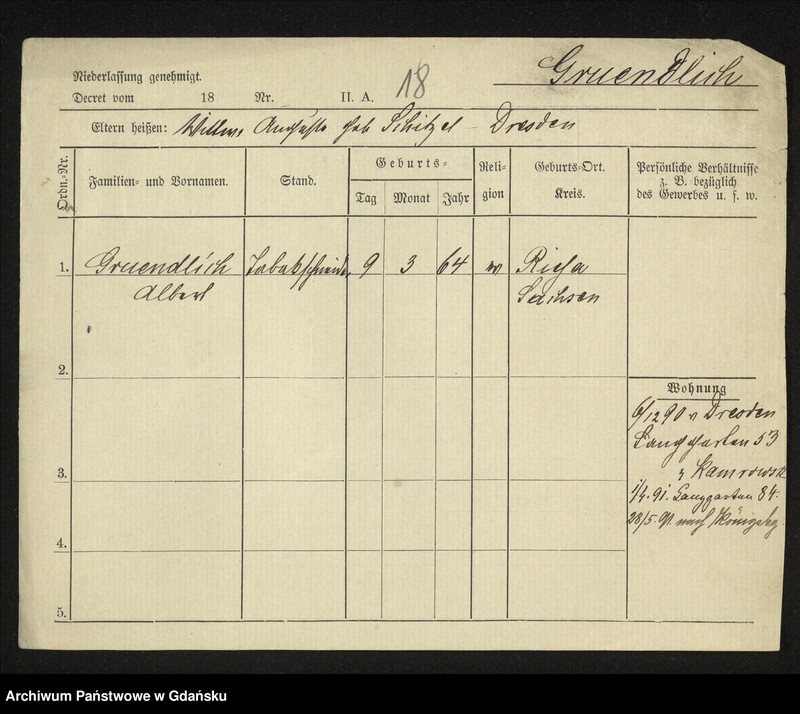 Gruendlich
Niederlassung genehmigt.
Decret vom 18 Nr. II. A. 18
Eltern heißen: Auguste geb Schitzel - Dresden
Ordn.-Nr.
Familien- und Vornamen.
Stand.
Geburts-
Tag Monat Jahr
Religion
Geburts-Ort.
Kreis.
Persönliche Verhältnisse
z. B. bezüglich
des Gewerbes u. s. w.
1. Gruendlich Tabakschneider 9 3 64 Riesa
Albert Sachsen
2.
Wohnung
6/12 90 v Dresden
Langgarten 53
3.
1/4. 91. Langgarten 84.
28/5. 91. nach Königsbg
4.
5.
Archiwum Państwowe w Gdańsku